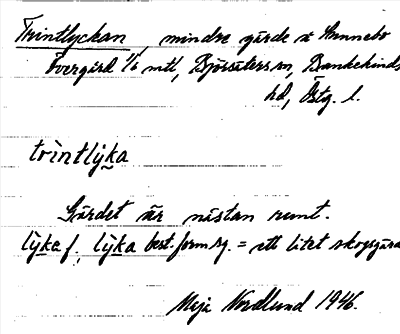 Trintlyckan, mindre gärde å Unnebo
Övergård 1/2 mtl, Björsäters sn, Bankekinds
hd, Östg. l.
trìntlỳka
Gärdet är nästan runt.
lỳka f., lỳka best. form sg. = ett litet skogsgärde
Maja Nordlund 1946.